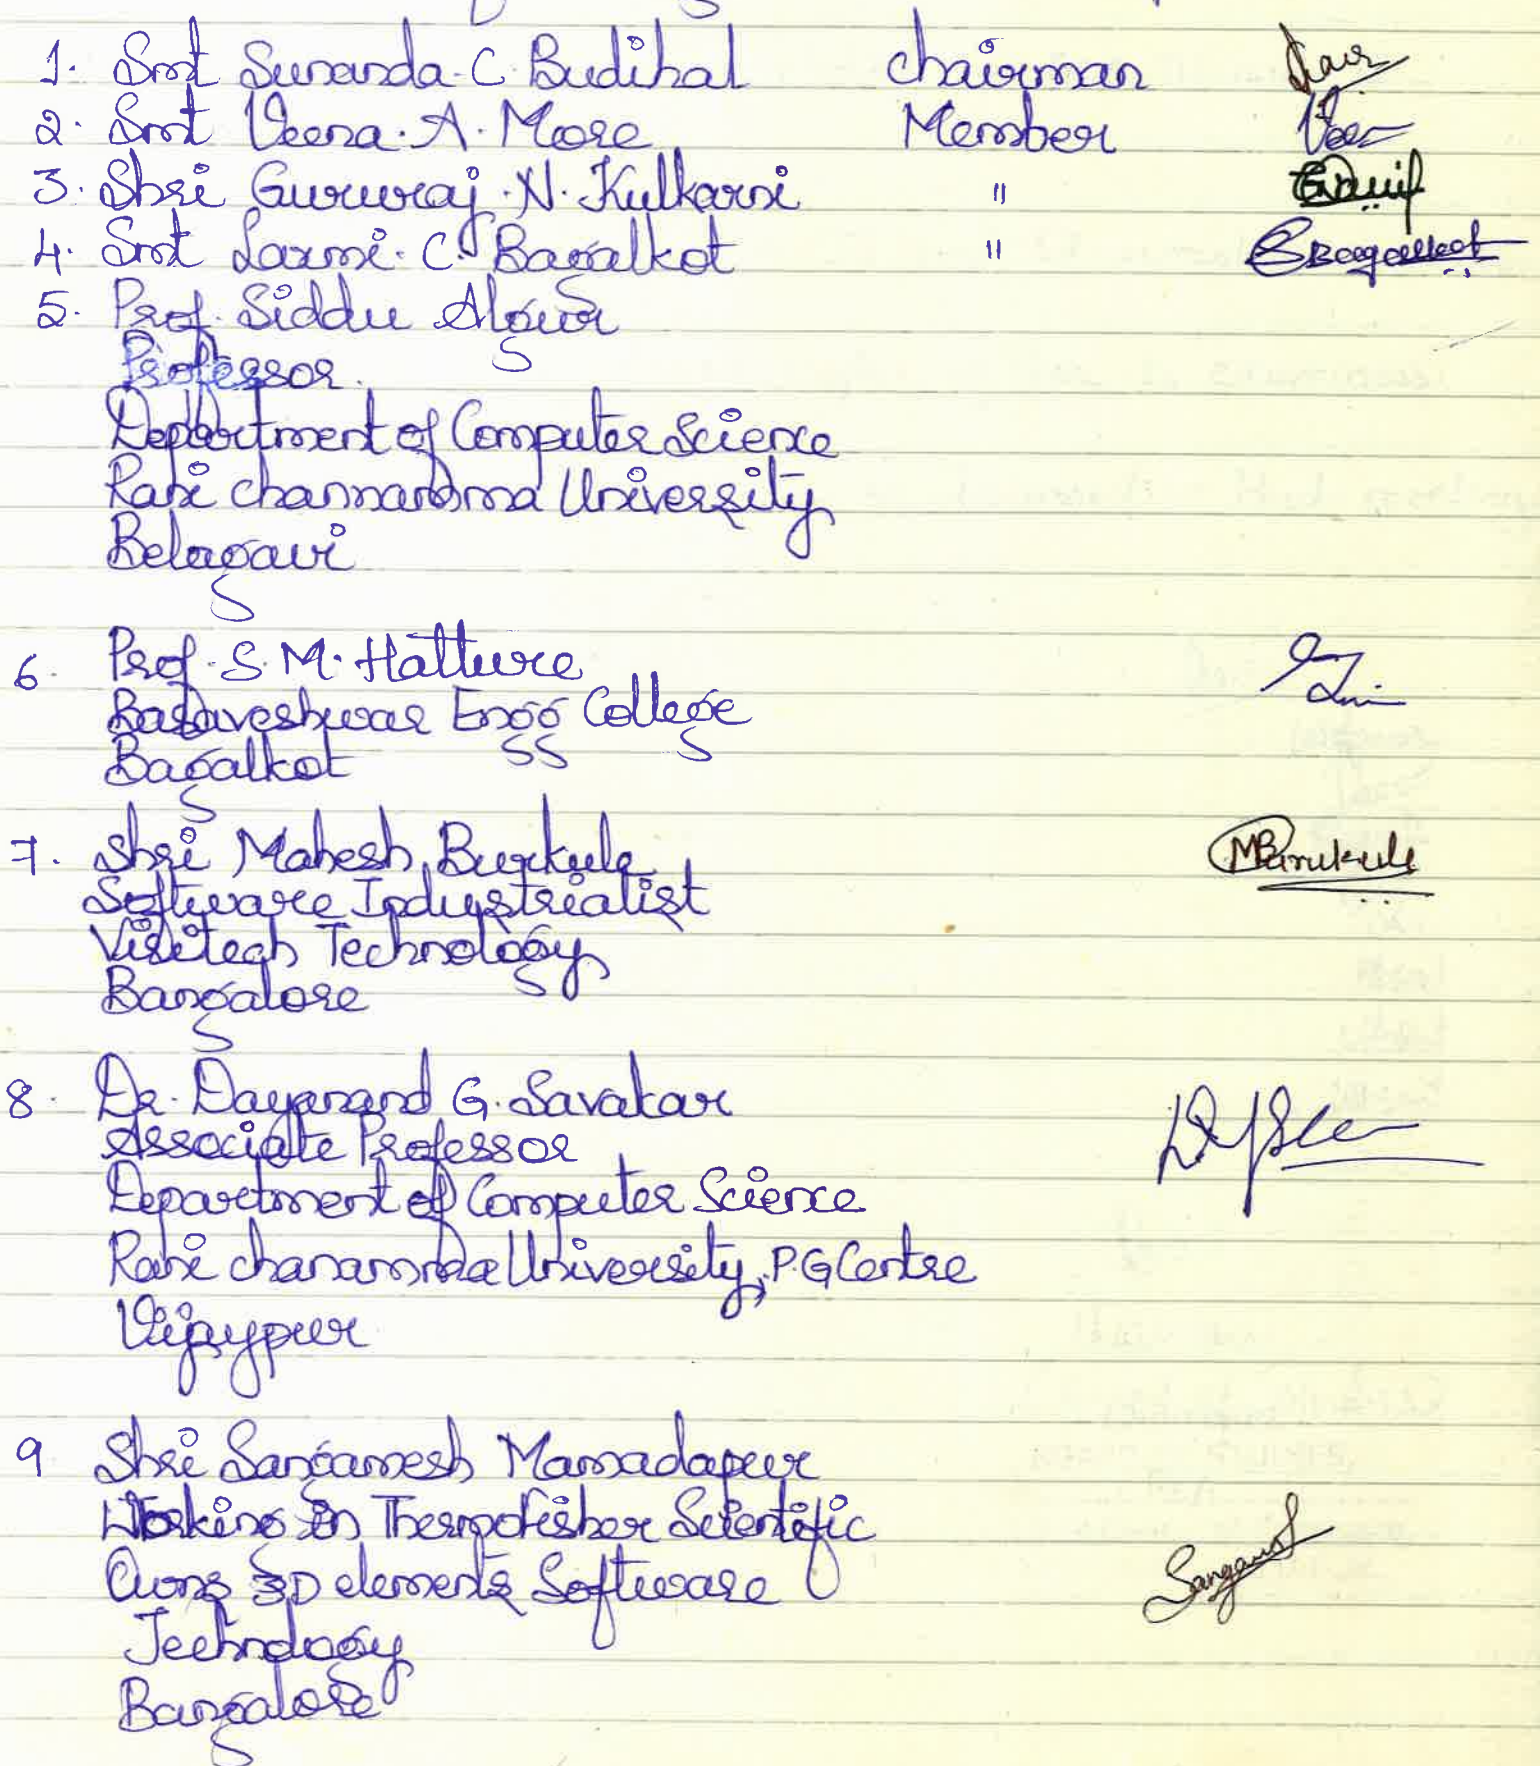 1. Smt Sunanda.C.Budihal chairman
2. Smt Veena.A.More Member
3. Shri Gururaj.N.Kulkarni "
4. Smt Laxmi.C.Bagalkot " Bagalkot
5. Prof. Siddu Algur
Professor.
Department of Computer Science
Rani channamma University
Belagavi
6. Prof.S.M.Hatture
Basaveshwar Engg College
Bagalkot
7. Shri Mahesh Burkule MBurukule
Software Industrialist
Visitech Technology
Bangalore
8. Dr. Dayanand G. Savakar
Associate Professor
Department of Computer Science
Rani chanamma University, P.G Centre
Vijaypur
9 Shri Sangamesh Mamadapur
Working in Thermofisher Scientific
Owns 3D elements Software
Technology
Bangalore